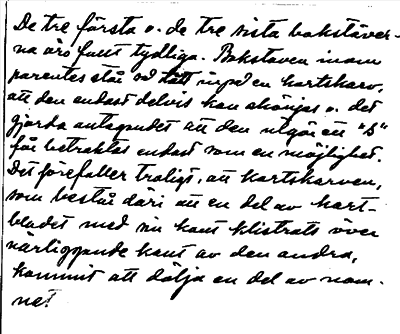 De tre första o. de tre sista bokstäver-
na äro fullt tydliga. Bokstaven inom
parentes står så tätt inpå en kartskarv,
att den endast delvis kan skönjas o. det
gjorda antagandet att den utgör ett "S"
får betraktas endast som en möjlighet.
Det förefaller troligt, att kartskarven,
som består däri att en del av kart-
bladet med sin kant klistrats över
närliggande kant av den andra,
kommit att dölja en del av nam-
net